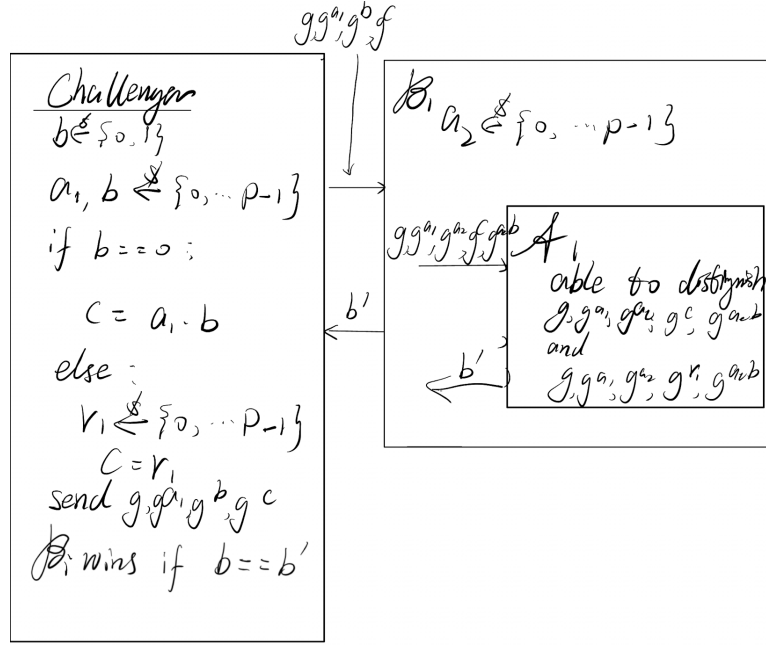 g,g^{a_1},g^b,f
Challenger
b ←$ {0,1}
a_1, b ←$ {0,...p-1}
if b==0:
c = a_1·b
else:
r_1 ←$ {0,...p-1}
C = r_1
send g,g^{a_1},g^b,g^c
B_1 wins if b==b'
b'
B_1
a_2 ←$ {0,...p-1}
g,g^{a_1},g^{a_2},f,g^{a_2b}
A_1
able to distinguish
g,g^{a_1},g^{a_2},g^c,g^{a_2b}
and
g,g^{a_1},g^{a_2},g^{r_1},g^{a_2b}
b'